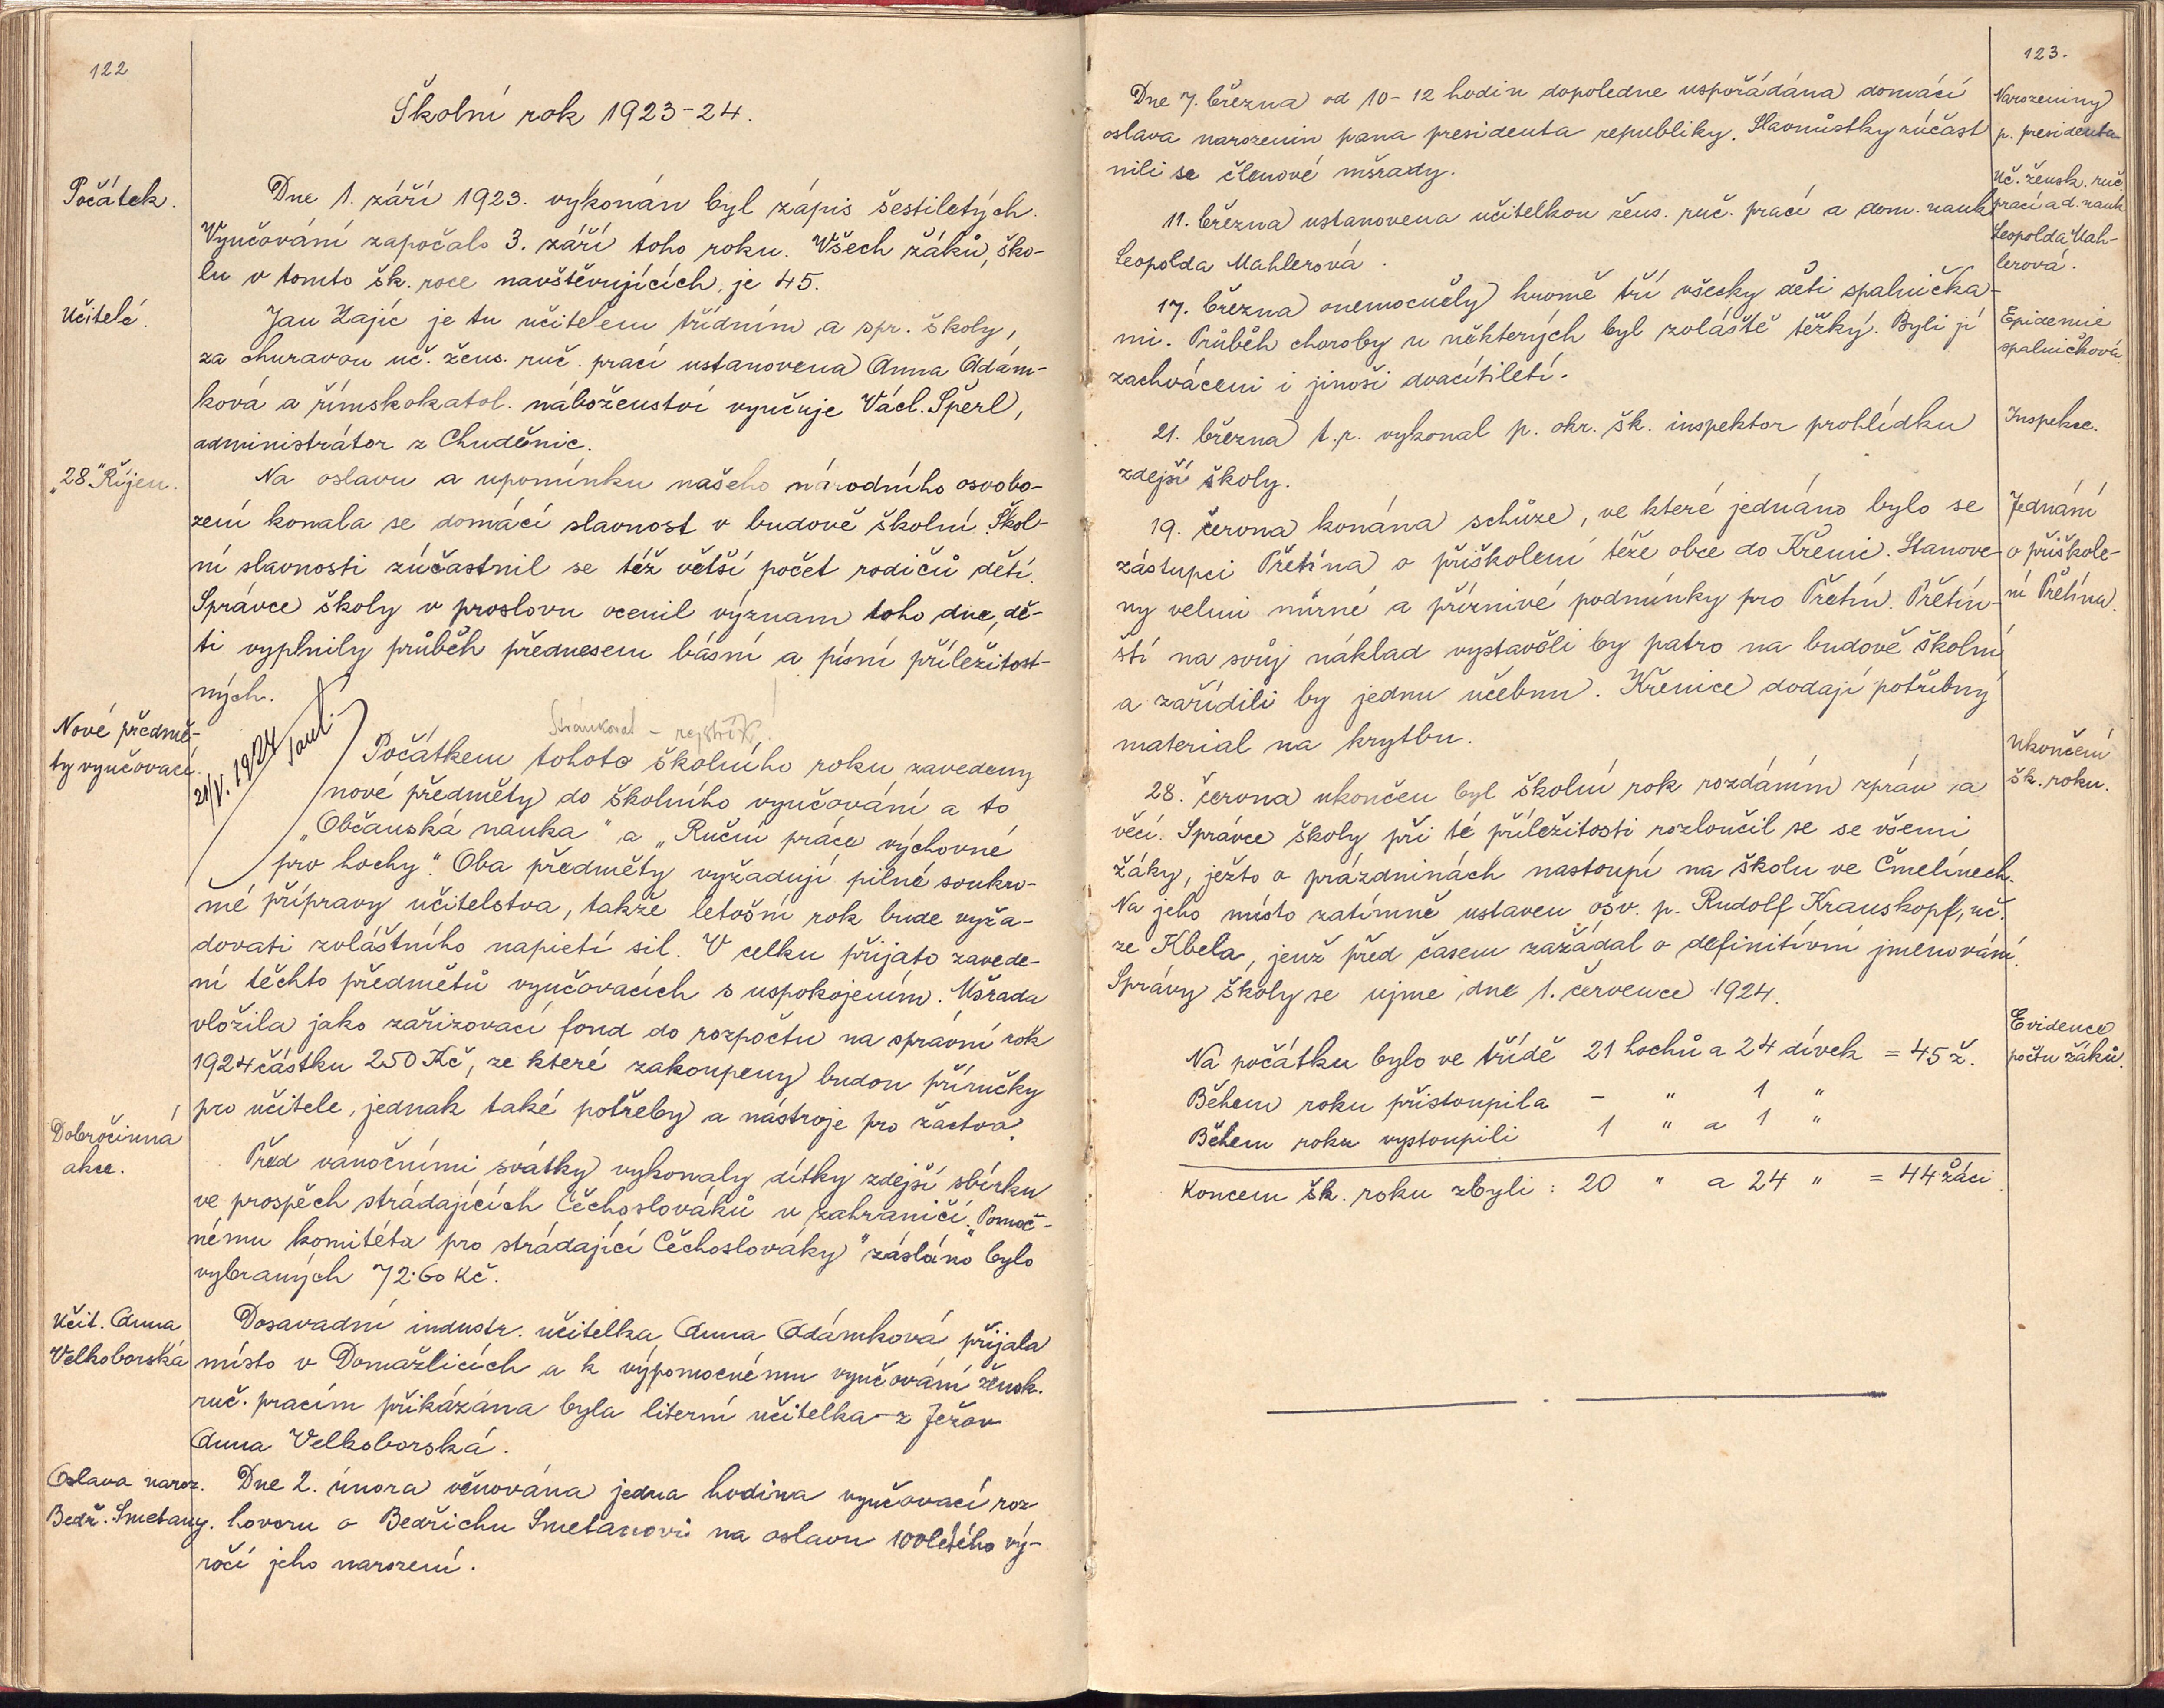 122
Školní rok 1923-24.
Počátek.
Dne 1. září 1923. vykonán byl zápis šestiletých.
Vyučování započalo 3. září toho roku. Všech žáků, ško-
lu v tomto šk. roce navštěvujících, je 45.
Učitelé.
Jan Zajíc je tu učitelem třídním a spr. školy,
za churavou uč. žens. ruč. prací ustanovena Anna Adám-
ková a římskokatol. náboženství vyučuje Václ. Šperl,
administrátor z Chuděnic.
„28." Říjen.
Na oslavu a upomínku našeho národního osvobo-
zení konala se domácí slavnost v budově školní. Škol-
ní slavnosti zúčastnil se též větší počet rodičů dětí.
Správce školy v proslovu ocenil význam toho dne, dě-
ti vyplnily průběh přednesem básní a písní příležitost-
ných.
Nové předmě-
ty vyučovací.
21/V. 1924
Stránkovat - rejstřík!
Počátkem tohoto školního roku zavedeny
nové předměty do školního vyučování a to
„Občanská nauka" a „Ruční práce výchovné
pro hochy". Oba předměty vyžadují pilné soukro-
mé přípravy učitelstva, takže letošní rok bude vyža-
dovati zvláštního napietí sil. V celku přijato zavede-
ní těchto předmětů vyučovacích s uspokojením. Mšrada
vložila jako zařizovací fond do rozpočtu na správní rok
1924 částku 250 Kč, ze které zakoupeny budou příručky
pro učitele, jednak také potřeby a nástroje pro žáctvo.
Dobročinná
akce.
Před vánočními svátky vykonaly dítky zdejší sbírku
ve prospěch strádajících Čechoslováků v zahraničí. „Pomoc-
nému komitéta pro strádající Čechoslováky" zásláno bylo
vybraných 72·60 Kč.
Učit. Anna
Velkoborská
Dosavadní industr. učitelka Anna Adámková přijala
místo v Domažlicích a k výpomocnému vyučování žensk.
ruč. pracím přikázána byla literní učitelka z Ježov
Anna Velkoborská.
Oslava naroz.
Bedř. Smetany.
Dne 2. února věnována jedna hodina vyučovací roz
hovoru o Bedřichu Smetanovi na oslavu 100letého vý-
ročí jeho narození.
123.
Dne 7. března od 10-12 hodin dopoledne uspořádána domácí
oslava narozenin pana presidenta republiky. Slavnůstky zúčast
nili se členové mšrady.
Narozeniny
p. presidenta
11. března ustanovena učitelkou žens. ruč. prací a dom. nauk
Leopolda Mahlerová.
Uč. žensk. ruč.
prací a d. nauk
Leopolda Mah-
lerová.
17. března onemocněly kromě tří všecky děti spalnička-
mi. Průběh choroby u některých byl zvláště těžký. Byli jí
zachváceni i jinoši dvacítiletí.
Epidemie
spalničková.
21. března t.r. vykonal p. okr. šk. inspektor prohlídku
zdejší školy.
Inspekce.
19. června konána schůze, ve které jednáno bylo se
zástupci Přetína o přiškolení téže obce do Křenic. Stanove-
ny velmi mírné a příznivé podmínky pro Přetín. Přetín-
ští na svůj náklad vystavěli by patro na budově školní
a zařídili by jednu učebnu. Křenice dodají potřebný
material na krytbu.
Jednání
o přiškole-
ní Přetína.
28. června ukončen byl školní rok rozdáním zpráv a
věcí. Správce školy při té příležitosti rozloučil se se všemi
žáky, ježto o prázdninách nastoupí na školu ve Čmelínech.
Na jeho místo zatímně ustaven osv. p. Rudolf Krauskopf, uč.
ze Kbela, jenž před časem zažádal o definitívní jmenování.
Správy školy se ujme dne 1. července 1924.
ukončení
šk. roku.
Na počátku bylo ve třídě 21 hochů a 24 dívek = 45 ž.
Během roku přistoupila - " 1 "
Během roku vystoupili 1 " a 1 "
Koncem šk. roku zbyli: 20 " a 24 " = 44 žáci.
Evidence
počtu žáků.